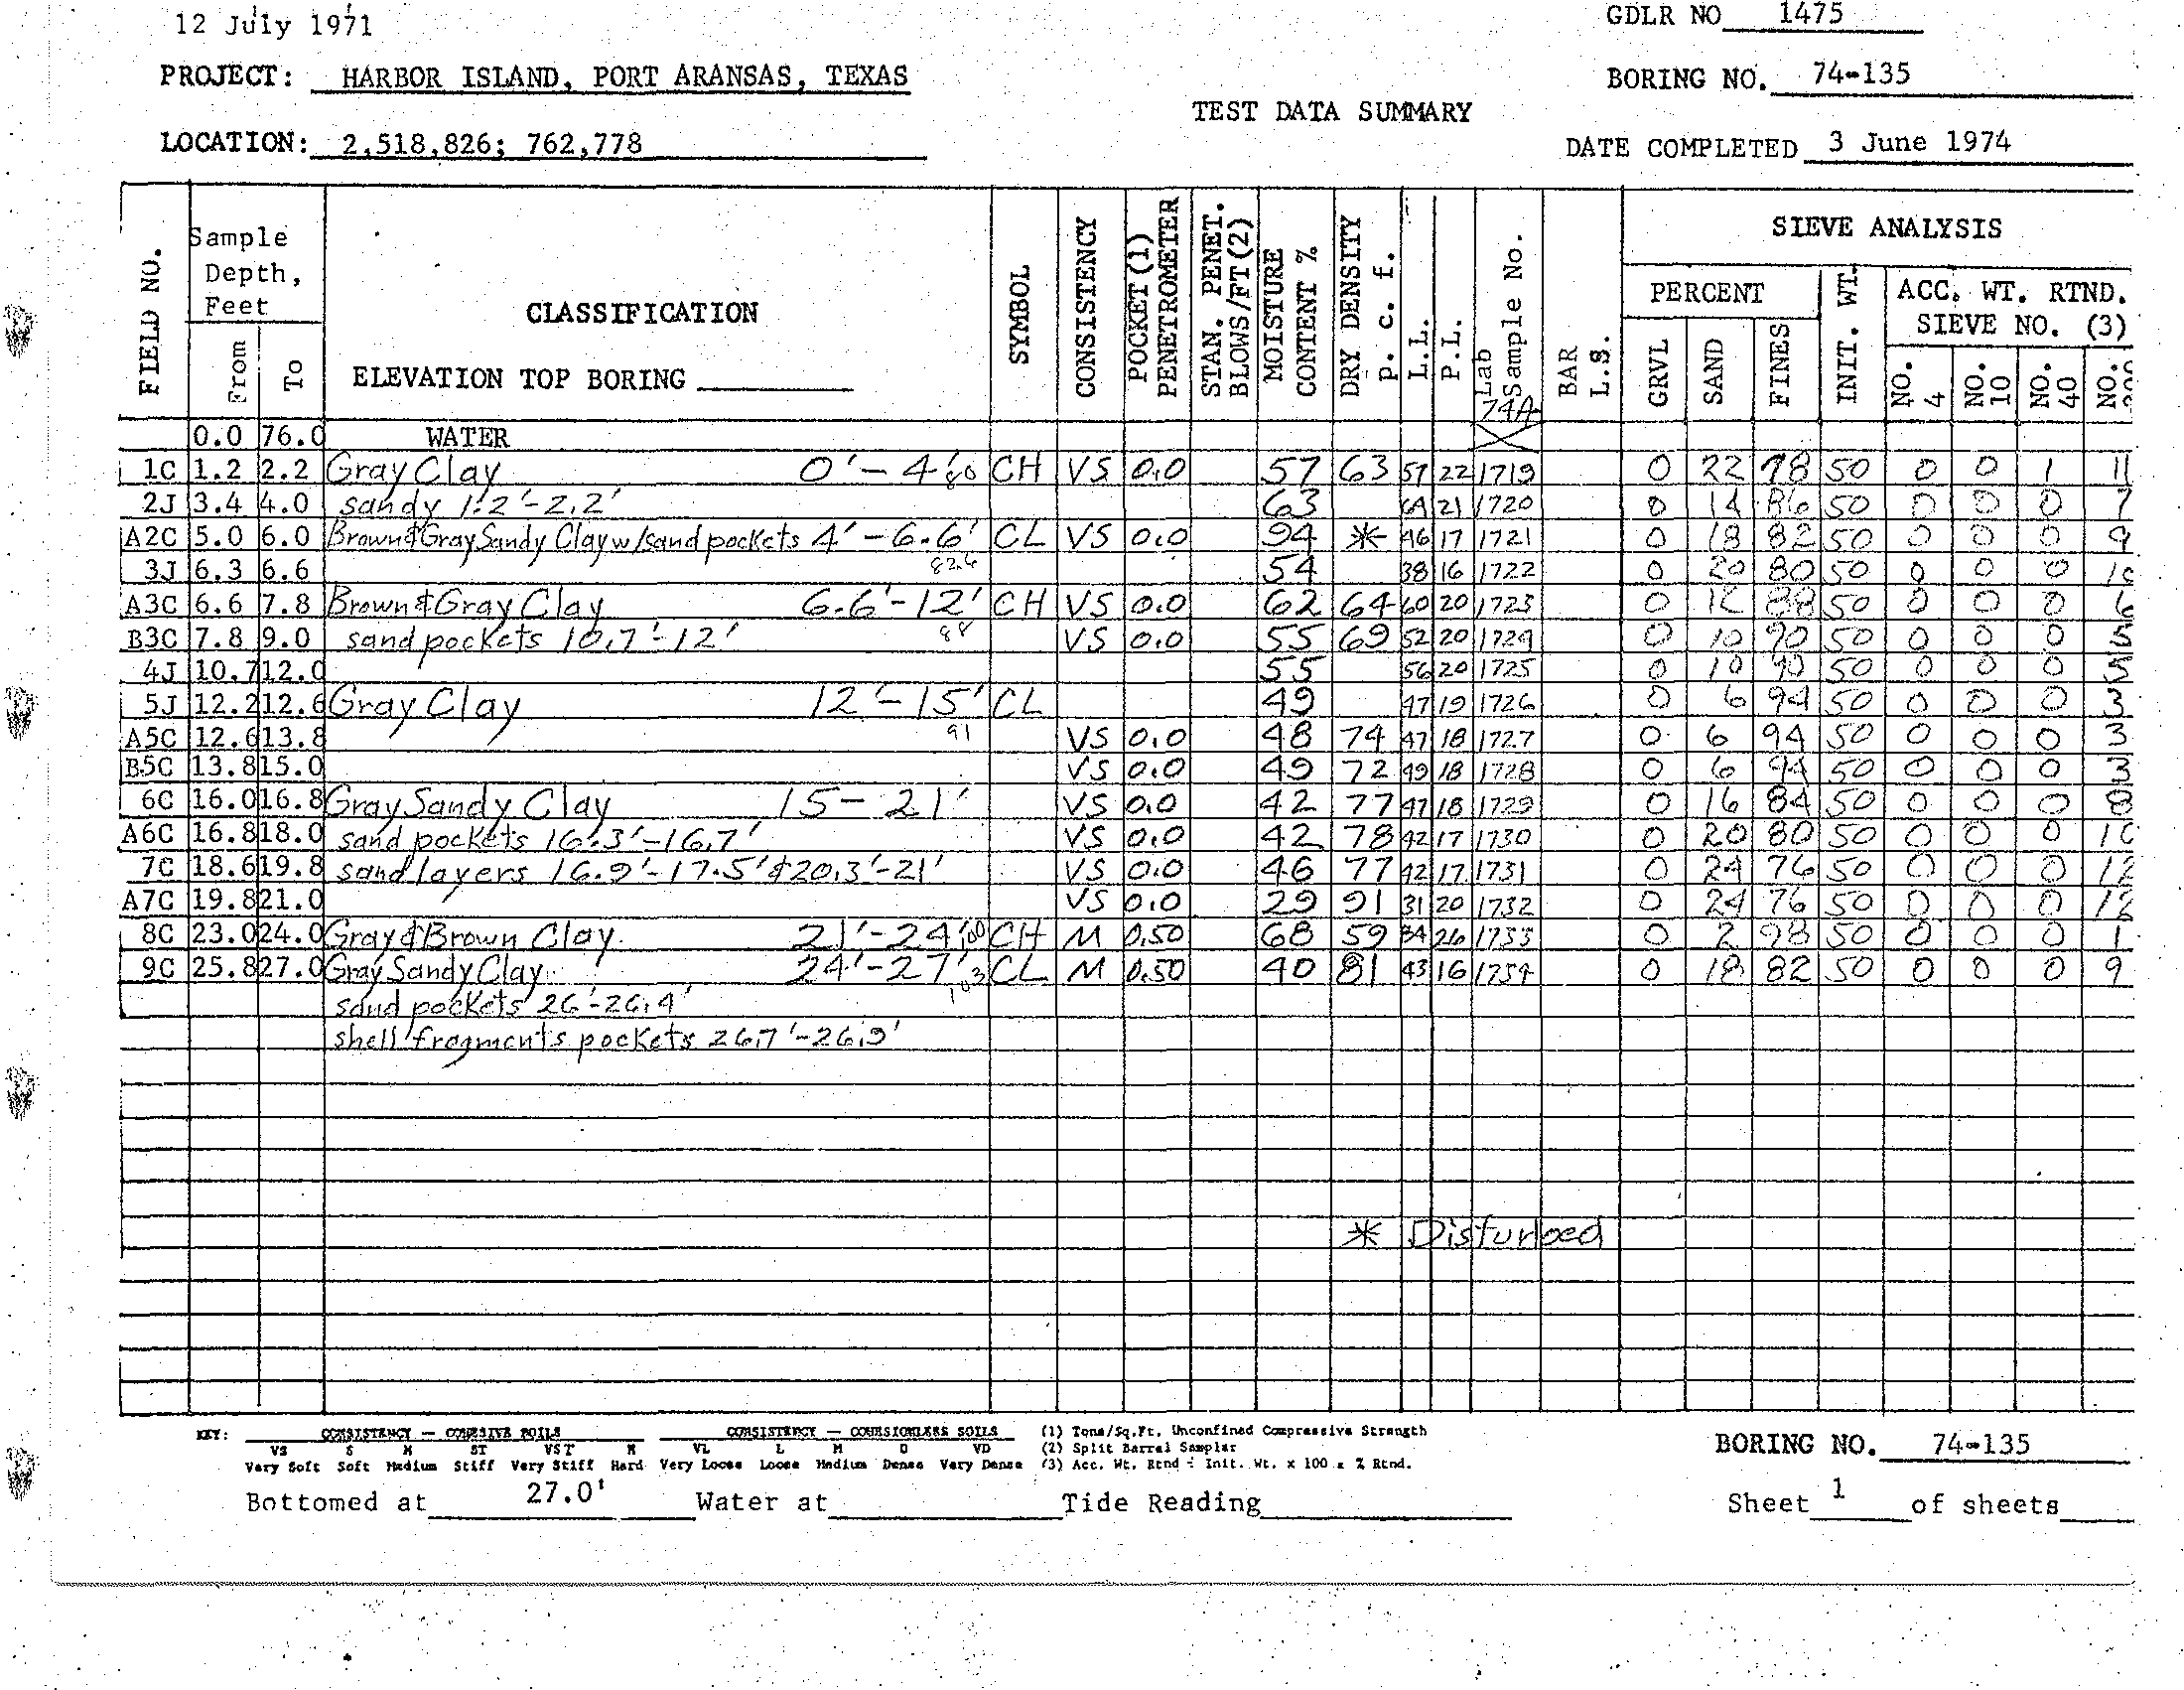 12 July 1971
GDLR NO 1475
PROJECT: HARBOR ISLAND, PORT ARANSAS, TEXAS
BORING NO. 74-135
TEST DATA SUMMARY
LOCATION: 2,518,826; 762,778
DATE COMPLETED 3 June 1974
FIELD NO.
Sample Depth, Feet
From
To
CLASSIFICATION
ELEVATION TOP BORING
SYMBOL
CONSISTENCY
POCKET (1) PENETROMETER
STAN. PENET. BLOWS/FT (2)
MOISTURE CONTENT %
DRY DENSITY p. c. f.
L.L.
P.L.
Lab Sample No.
74A
BAR L.S.
SIEVE ANALYSIS
PERCENT
GRVL
SAND
FINES
INIT. WT.
ACC. WT. RTND.
SIEVE NO. (3)
NO. 4
NO. 10
NO. 40
NO.
0.0 76.0 WATER
1C 1.2 2.2 Gray Clay 0'-4' 80 CH VS 0.0 57 63 57 22 1719 0 22 78 50 0 0 1 11
2J 3.4 4.0 sandy 1.2'-2.2' 63 21 1720 0 14 86 50 0 0 0 7
A2C 5.0 6.0 Brown & Gray Sandy Clay w/sand pockets 4'-6.6' CL VS 0.0 94 * 46 17 1721 0 18 82 50 0 0 0 9
82.6
3J 6.3 6.6 54 38 16 1722 0 20 80 50 0 0 0 10
A3C 6.6 7.8 Brown & Gray Clay 6.6'-12' CH VS 0.0 62 64 60 20 1723 0 88 50 0 0 0 6
B3C 7.8 9.0 sand pockets 10.7'-12' 88 VS 0.0 55 69 52 20 1724 0 10 90 50 0 0 0 5
4J 10.7 12.0 55 56 20 1725 0 10 90 50 0 0 0 5
5J 12.2 12.6 Gray Clay 12'-15' CL 49 47 19 1726 0 6 94 50 0 0 0 3
A5C 12.6 13.8 91 VS 0.0 48 74 47 18 1727 0 6 94 50 0 0 0 3
B5C 13.8 15.0 VS 0.0 49 72 49 18 1728 0 6 94 50 0 0 0 3
6C 16.0 16.8 Gray Sandy Clay 15-21' VS 0.0 42 77 47 18 1729 0 16 84 50 0 0 0 8
A6C 16.8 18.0 sand pockets 16.3'-16.7' VS 0.0 42 78 42 17 1730 0 20 80 50 0 0 0 10
7C 18.6 19.8 sand layers 16.9'-17.5' & 20.3'-21' VS 0.0 46 77 42 17 1731 0 24 76 50 0 0 0 12
A7C 19.8 21.0 VS 0.0 29 91 31 20 1732 0 24 76 50 0 0 0 12
8C 23.0 24.0 Gray & Brown Clay 21'-24' 100 CH M 0.50 68 59 84 26 1733 0 2 98 50 0 0 0 1
9C 25.8 27.0 Gray Sandy Clay 24'-27' 103 CL M 0.50 40 81 43 16 1734 0 18 82 50 0 0 0 9
sand pockets 26'-26.4'
shell fragments pockets 26.7'-26.9'
* Disturbed
KEY: CONSISTENCY — COHESIVE SOILS CONSISTENCY — COHESIONLESS SOILS (1) Tons/Sq.Ft. Unconfined Compressive Strength
VS S M ST VST H VL L M D VD (2) Split Barrel Sampler
Very Soft Soft Medium Stiff Very Stiff Hard Very Loose Loose Medium Dense Very Dense (3) Acc. Wt. Rtnd ÷ Init. Wt. x 100 = % Rtnd.
BORING NO. 74-135
Bottomed at 27.0' Water at Tide Reading
Sheet 1 of sheets